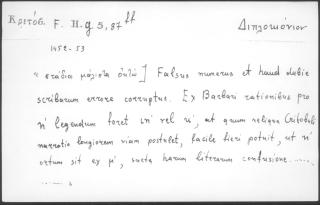 Κριτόβ. F. H. g 5, 87 ff
Διπλοκιόνιον
1452-53
« στάδια μάλιστα ὀκτώ] Falsus numerus et haud dubie
scribarum errore corruptus. Ex Barbari rationibus pro
η´ legendum foret ιη´ vel κ´, at quum reliqua Critobuli
narratio longiorem viam postulet, facile fieri potuit, ut η´
ortum sit ex μ´, sueta harum literarum confusione.....